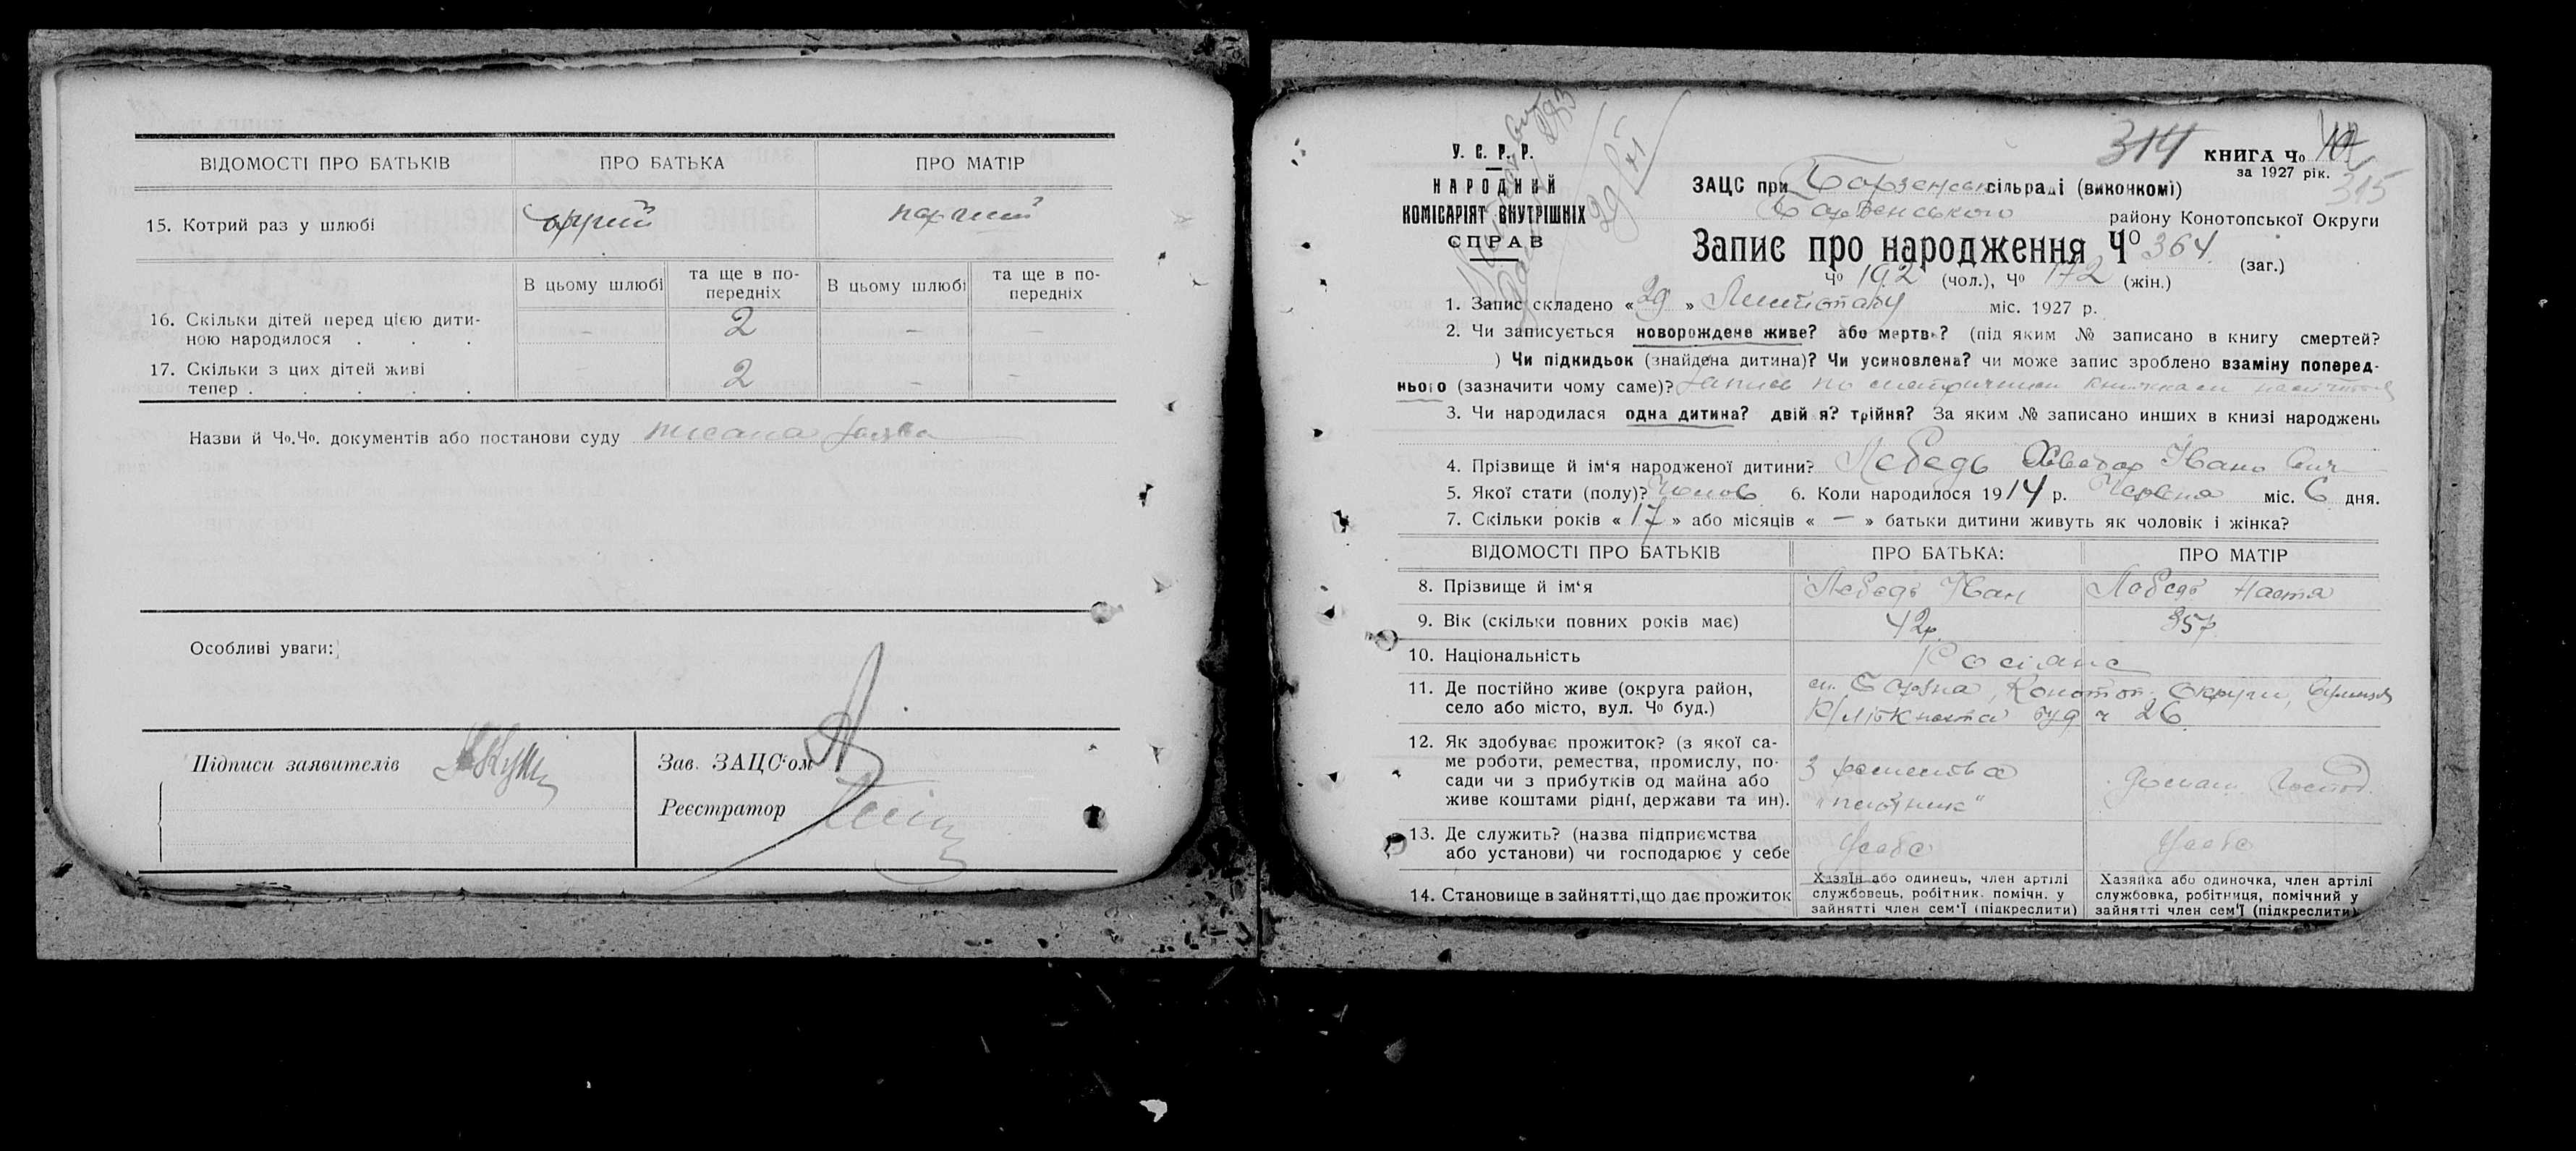 ВІДОМОСТІ ПРО БАТЬКІВ
ПРО БАТЬКА
ПРО МАТІР
15. Котрий раз у шлюбі
другий
перший
В цьому шлюбі
та ще в по-
передніх
В цьому шлюбі
та ще в по-
передніх
16. Скільки дітей перед цією дити-
ною народилося . . .
– 2 – –
17. Скільки з цих дітей живі
тепер . . . . .
– 2 – –
Назви й Чо.Чо. документів або постанови суду писана заява
Особливі уваги:
Підписи заявителів
Зав. ЗАЦС'ом
Реєстратор
У. С. Р. Р.
НАРОДНИЙ
КОМІСАРІЯТ ВНУТРІШНІХ
СПРАВ
29/XI
314
КНИГА Чо
за 1927 рік.
315
ЗАЦС при Борзенськ сільраді (виконкомі)
Борзенського району Конотопської Округи
Запис про народження Чо 364 (заг.)
Чо 192 (чол.), Чо 172 (жін.)
1. Запис складено « 29 » Листопаду міс. 1927 р.
2. Чи записується новорождене живе? або мертве? (під яким № записано в книгу смертей?
) Чи підкидьок (знайдена дитина)? Чи усиновлена? чи може запис зроблено взаміну поперед-
нього (зазначити чому саме)? Запись по метричним книжкам
3. Чи народилася одна дитина? двійня? трійня? За яким № записано инших в книзі народжень
4. Прізвище й ім'я народженої дитини? Лебедь Хведор Іванович
5. Якої стати (полу)? Чолов 6. Коли народилося 1914 р. Червня міс. 6 дня.
7. Скільки років « 17 » або місяців « — » батьки дитини живуть як чоловік і жінка?
ВІДОМОСТІ ПРО БАТЬКІВ
ПРО БАТЬКА:
ПРО МАТІР
8. Прізвище й ім'я
Лебедь Іван
Лебедь Настя
9. Вік (скільки повних років має)
42р.
35р.
10. Національність
Росіяне
11. Де постійно живе (округа район,
село або місто, вул. Чо буд.)
м. Борзна, Конотоп. Округи, вулиця
К/Лібкнехта буд ч 26
12. Як здобуває прожиток? (з якої са-
ме роботи, ремества, промислу, по-
сади чи з прибутків од майна або
живе коштами рідні, держави та ин).
З ремества
"плотник"
Домаш. Господ.
13. Де служить? (назва підприємства
або установи) чи господарює у себе
У себе
У себе
14. Становище в зайнятті, що дає прожиток
Хазяїн або одинець, член артілі
службовець, робітник. помічн. у
зайнятті член сем'ї (підкреслити)
Хазяйка або одиночка, член артілі
службовка, робітниця, помічний у
зайнятті член сем'ї (підкреслити)